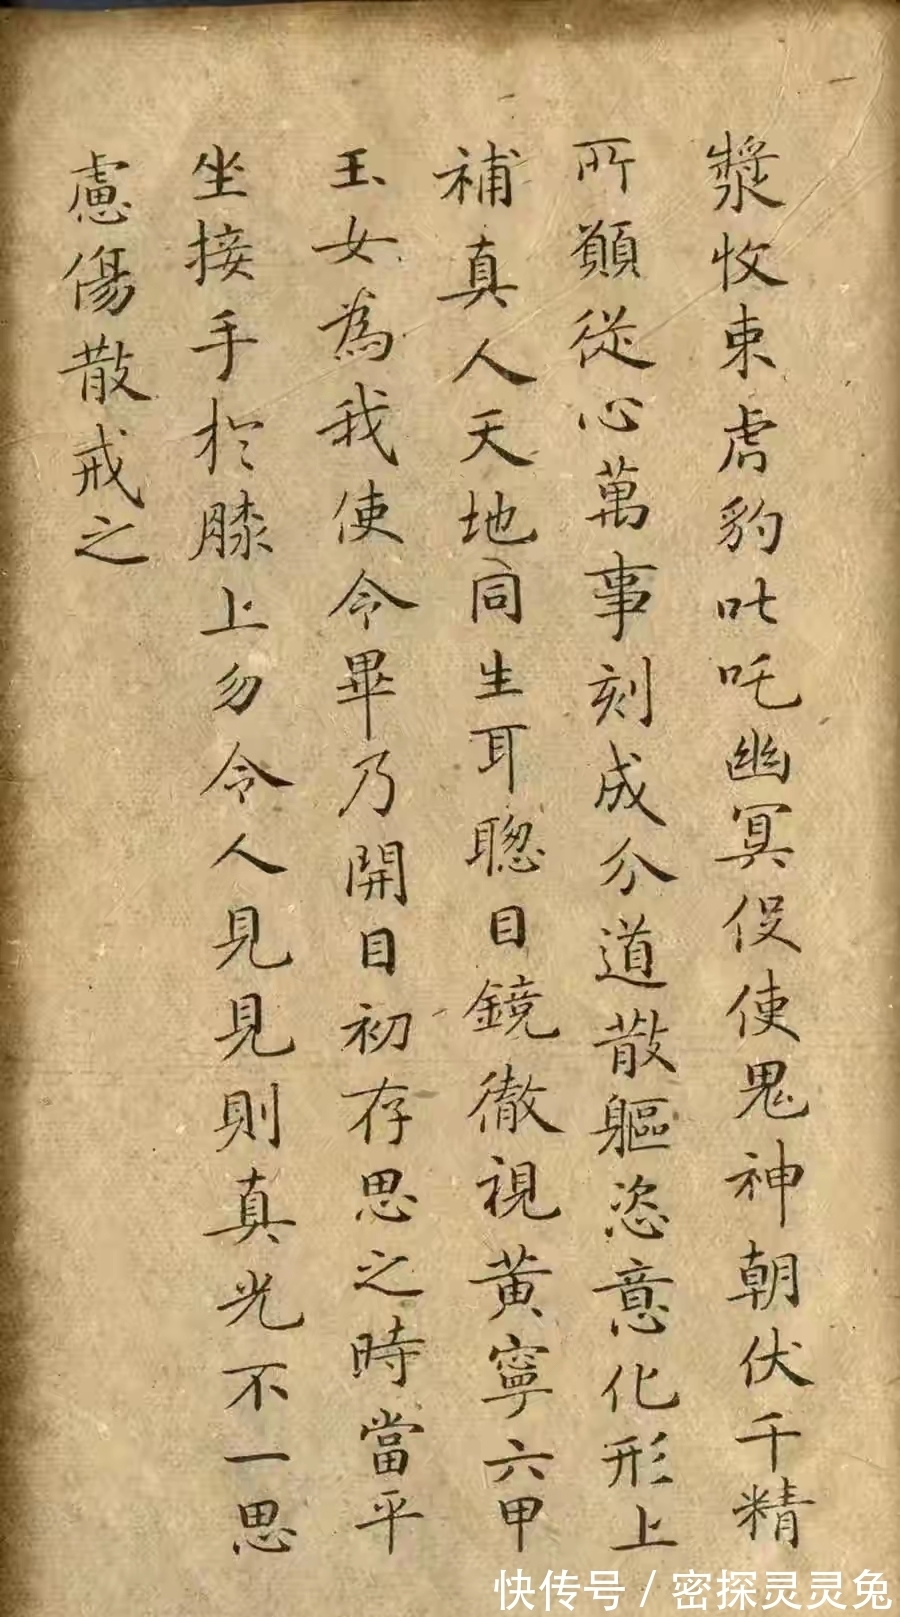 漿收束虎豹叱吒幽冥役使鬼神朝伏千精
所願從心萬事刻成分道散軀恣意化形上
補真人天地同生耳聰目鏡徹視黃寧六甲
玉女為我使令畢乃開目初存思之時當平
坐接手於膝上勿令人見見則真光不一思
慮傷散戒之
快传号/密探灵灵兔